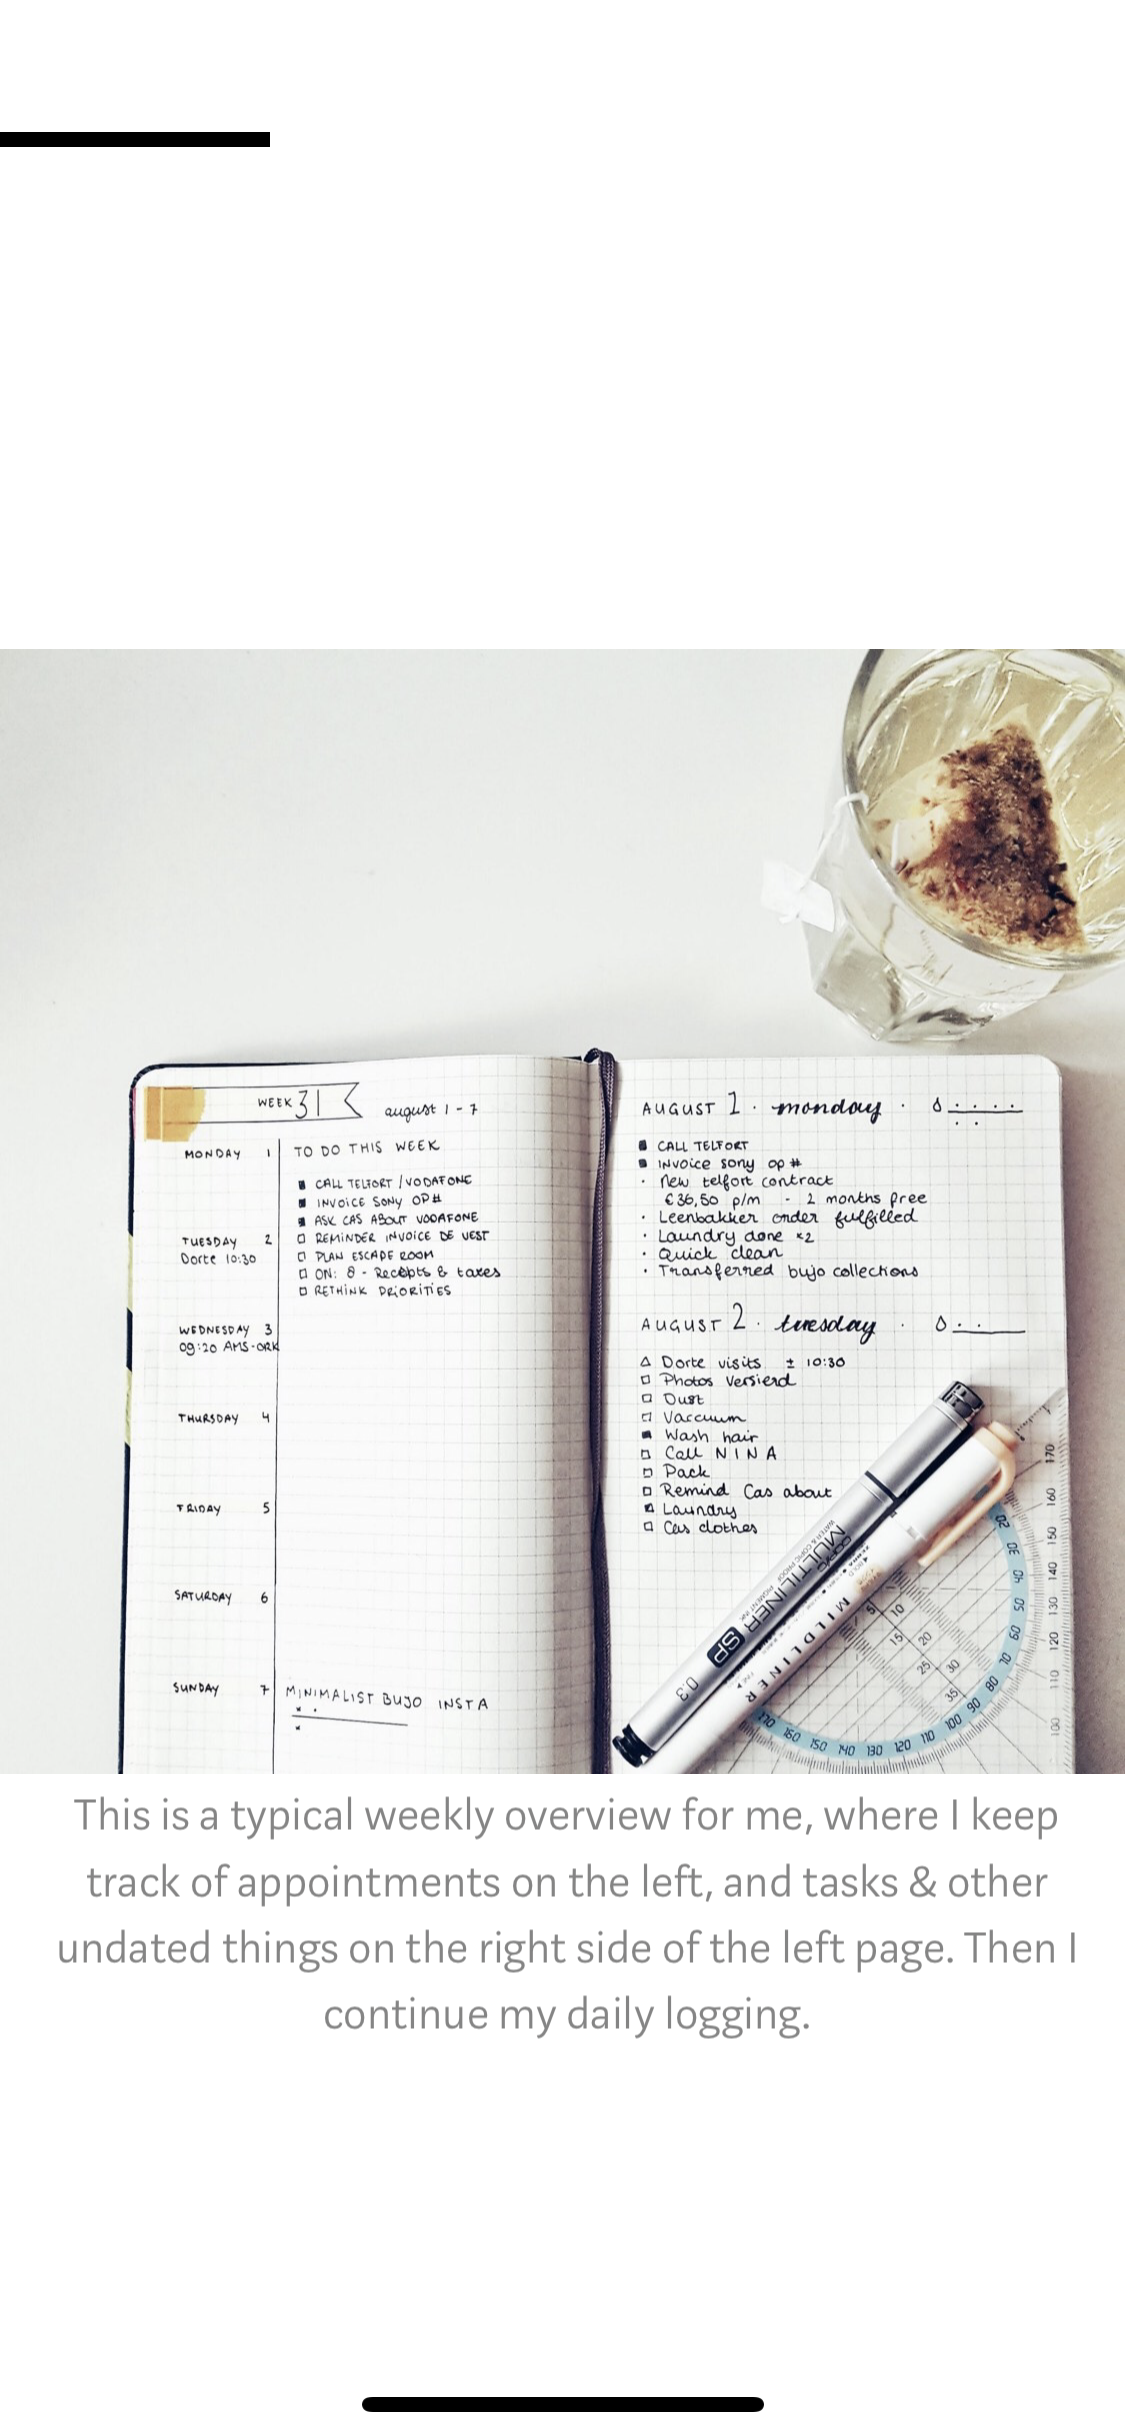 WEEK 31 august 1 - 7
MONDAY 1
TUESDAY 2
Dorte 10:30
WEDNESDAY 3
09:20 AMS-ORK
THURSDAY 4
FRIDAY 5
SATURDAY 6
SUNDAY 7
TO DO THIS WEEK
CALL TELFORT / VODAFONE
INVOICE SONY OP#
ASK CAS ABOUT VODAFONE
REMINDER INVOICE DE VEST
PLAN ESCAPE ROOM
ON: 8 - Receipts & taxes
RETHINK PRIORITIES
MINIMALIST BUJO INSTA
AUGUST 1 · monday ·
CALL TELFORT
INVOICE SONY OP#
· New telfort contract
€36,50 p/m - 2 months free
· Leenbakker order fulfilled
· Laundry done x2
· Quick clean
· Transferred bujo collections
AUGUST 2 · tuesday ·
Dorte visits ± 10:30
Photos Versierd
Dust
Vaccuum
Wash hair
Call NINA
Pack
Remind Cas about
Laundry
Cas clothes
COPIC
MULTILINER SP
WATER & COPIC PROOF PIGMENT INK
0.3
MILDLINER
20 30 40 50 60 70 80 90 100 110 120 130 140 150 160 170
170 160 150 140 130 120 110 100
5 10
15 20
25 30
35
This is a typical weekly overview for me, where I keep
track of appointments on the left, and tasks & other
undated things on the right side of the left page. Then I
continue my daily logging.